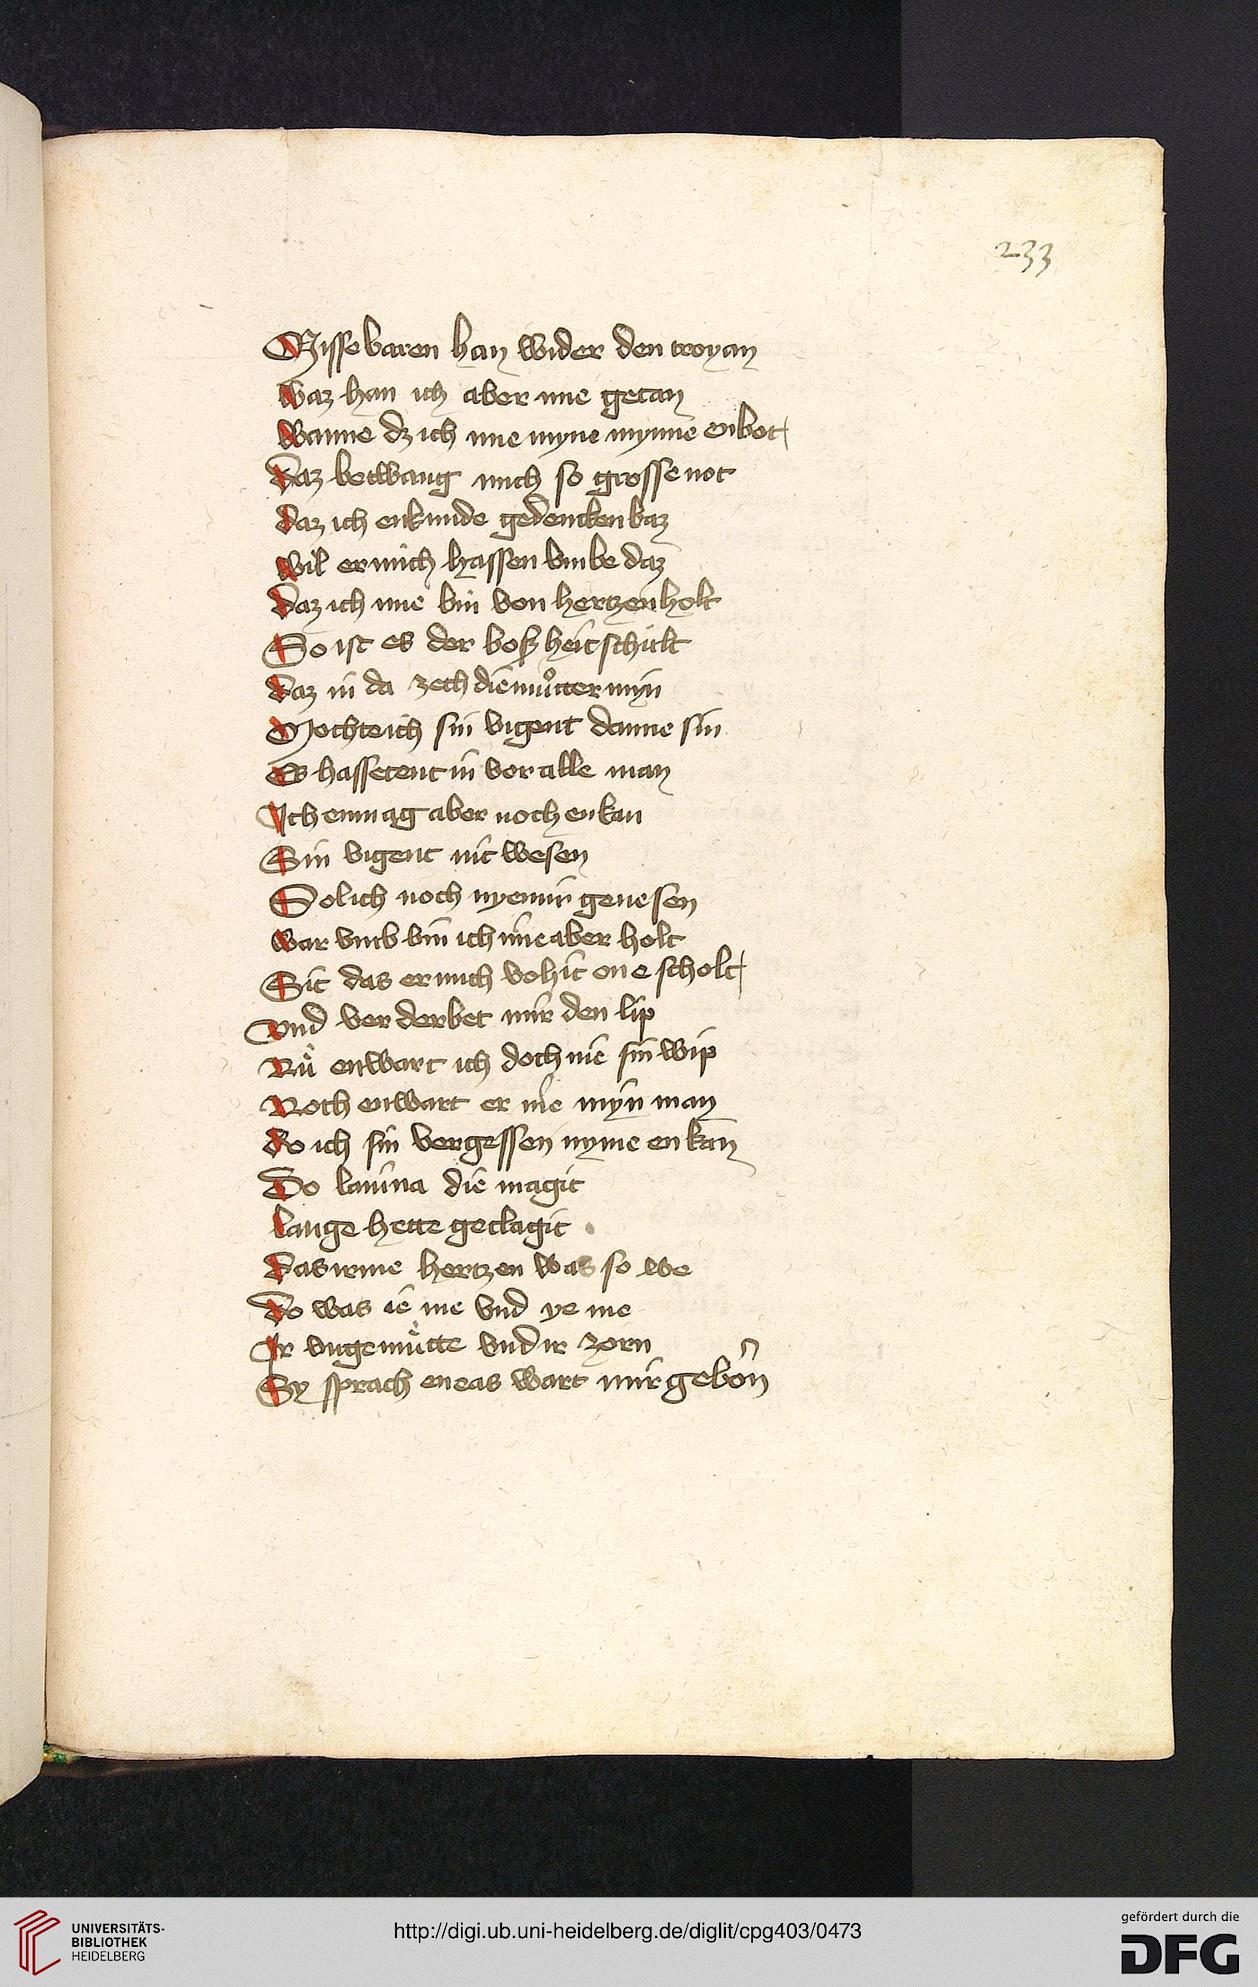 233
Missebaren han wider den troyan
waz han ich aber ime getan
wanne dz ich ime myne mynne enbot
daz betwang mich so grosse not
daz ich enkunde gedencken baz
wil er mich hassen vmbe daz
daz ich ime bin von hertzen holt
So ist es der boßheit schult
daz in da zech die muͦtter myn
Mochte ich sin vigent danne sin
Es hassetent in vor alle man
Ich enmag aber noch enkan
Sin vigent nit wesen
Sol ich noch nyemir genesen
war vmb bin ich ime aber holt
Sit das er mich vohit one scholt
vnd verderbet mir den lip
Nuͦ enwart ich doch nie sin wip
Noch enwart er nie myn man
do ich sin vergessen nyme enkan
Do lauina die magit
lange hette geclagit
das irme hertzen was so we
do was ie me vnd ye me
Ir vngemuͤtte vnd ir zorn
Sy sprach eneas wart mir geborn
UNIVERSITÄTS-
BIBLIOTHEK
HEIDELBERG
http://digi.ub.uni-heidelberg.de/diglit/cpg403/0473
gefördert durch die
DFG